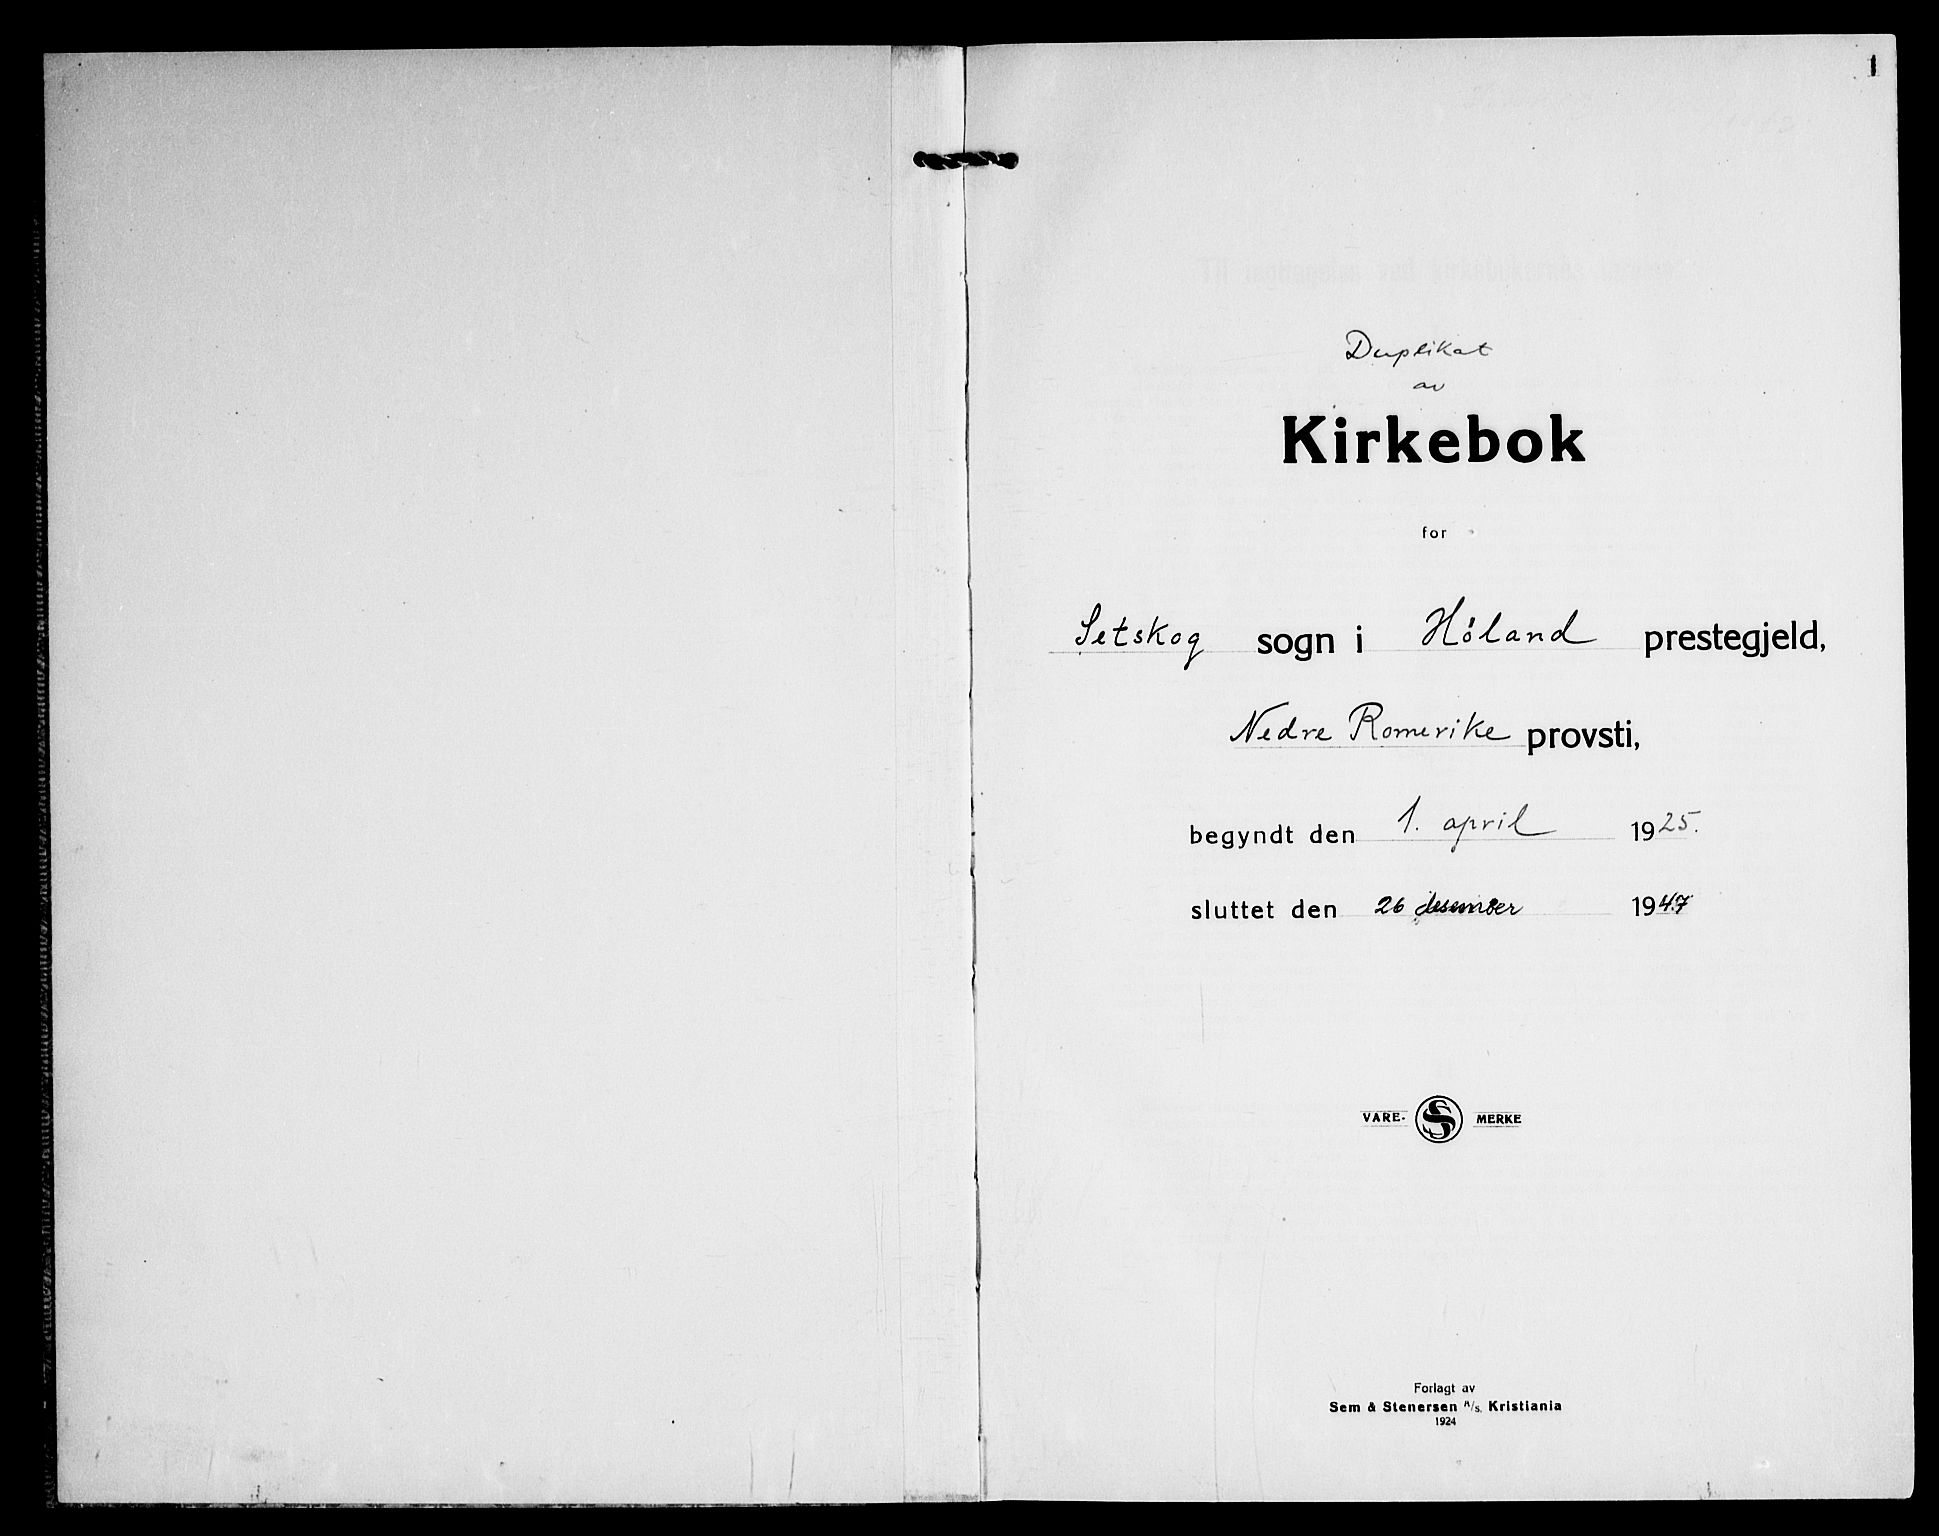 1
Duplikat
av
Kirkebok
for
Setskog sogn i Høland prestegjeld,
Nedre Romerike provsti,
begyndt den 1. april 1925.
sluttet den 26 desember 1947
VARE- S MERKE
Forlagt av
Sem & Stenersen A/S. Kristiania
1924